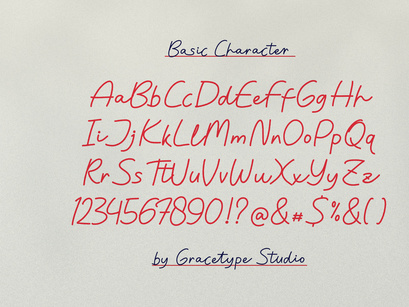 Basic Character
AaBbCcDdEeFfGgHh
IiJjKkLlMmNnOoPpQq
RrSsTtUuVvWwXxYyZz
1234567890!?@&#$%&()
by Gracetype Studio